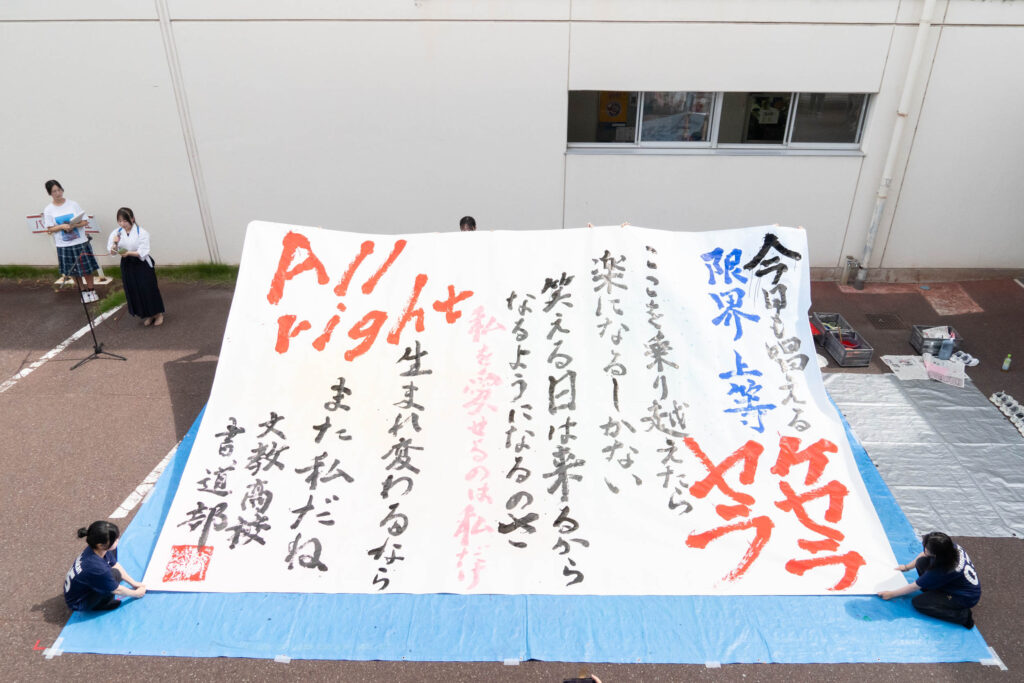 今日も唱える
ケセラ
セラ
限界上等
ここを乗り越えたら
楽になるしかない
笑える日は来るから
なるようになるのさ
私を愛せるのは私だけ
All
right
生まれ変わるなら
また私だね
文教高校
書道部